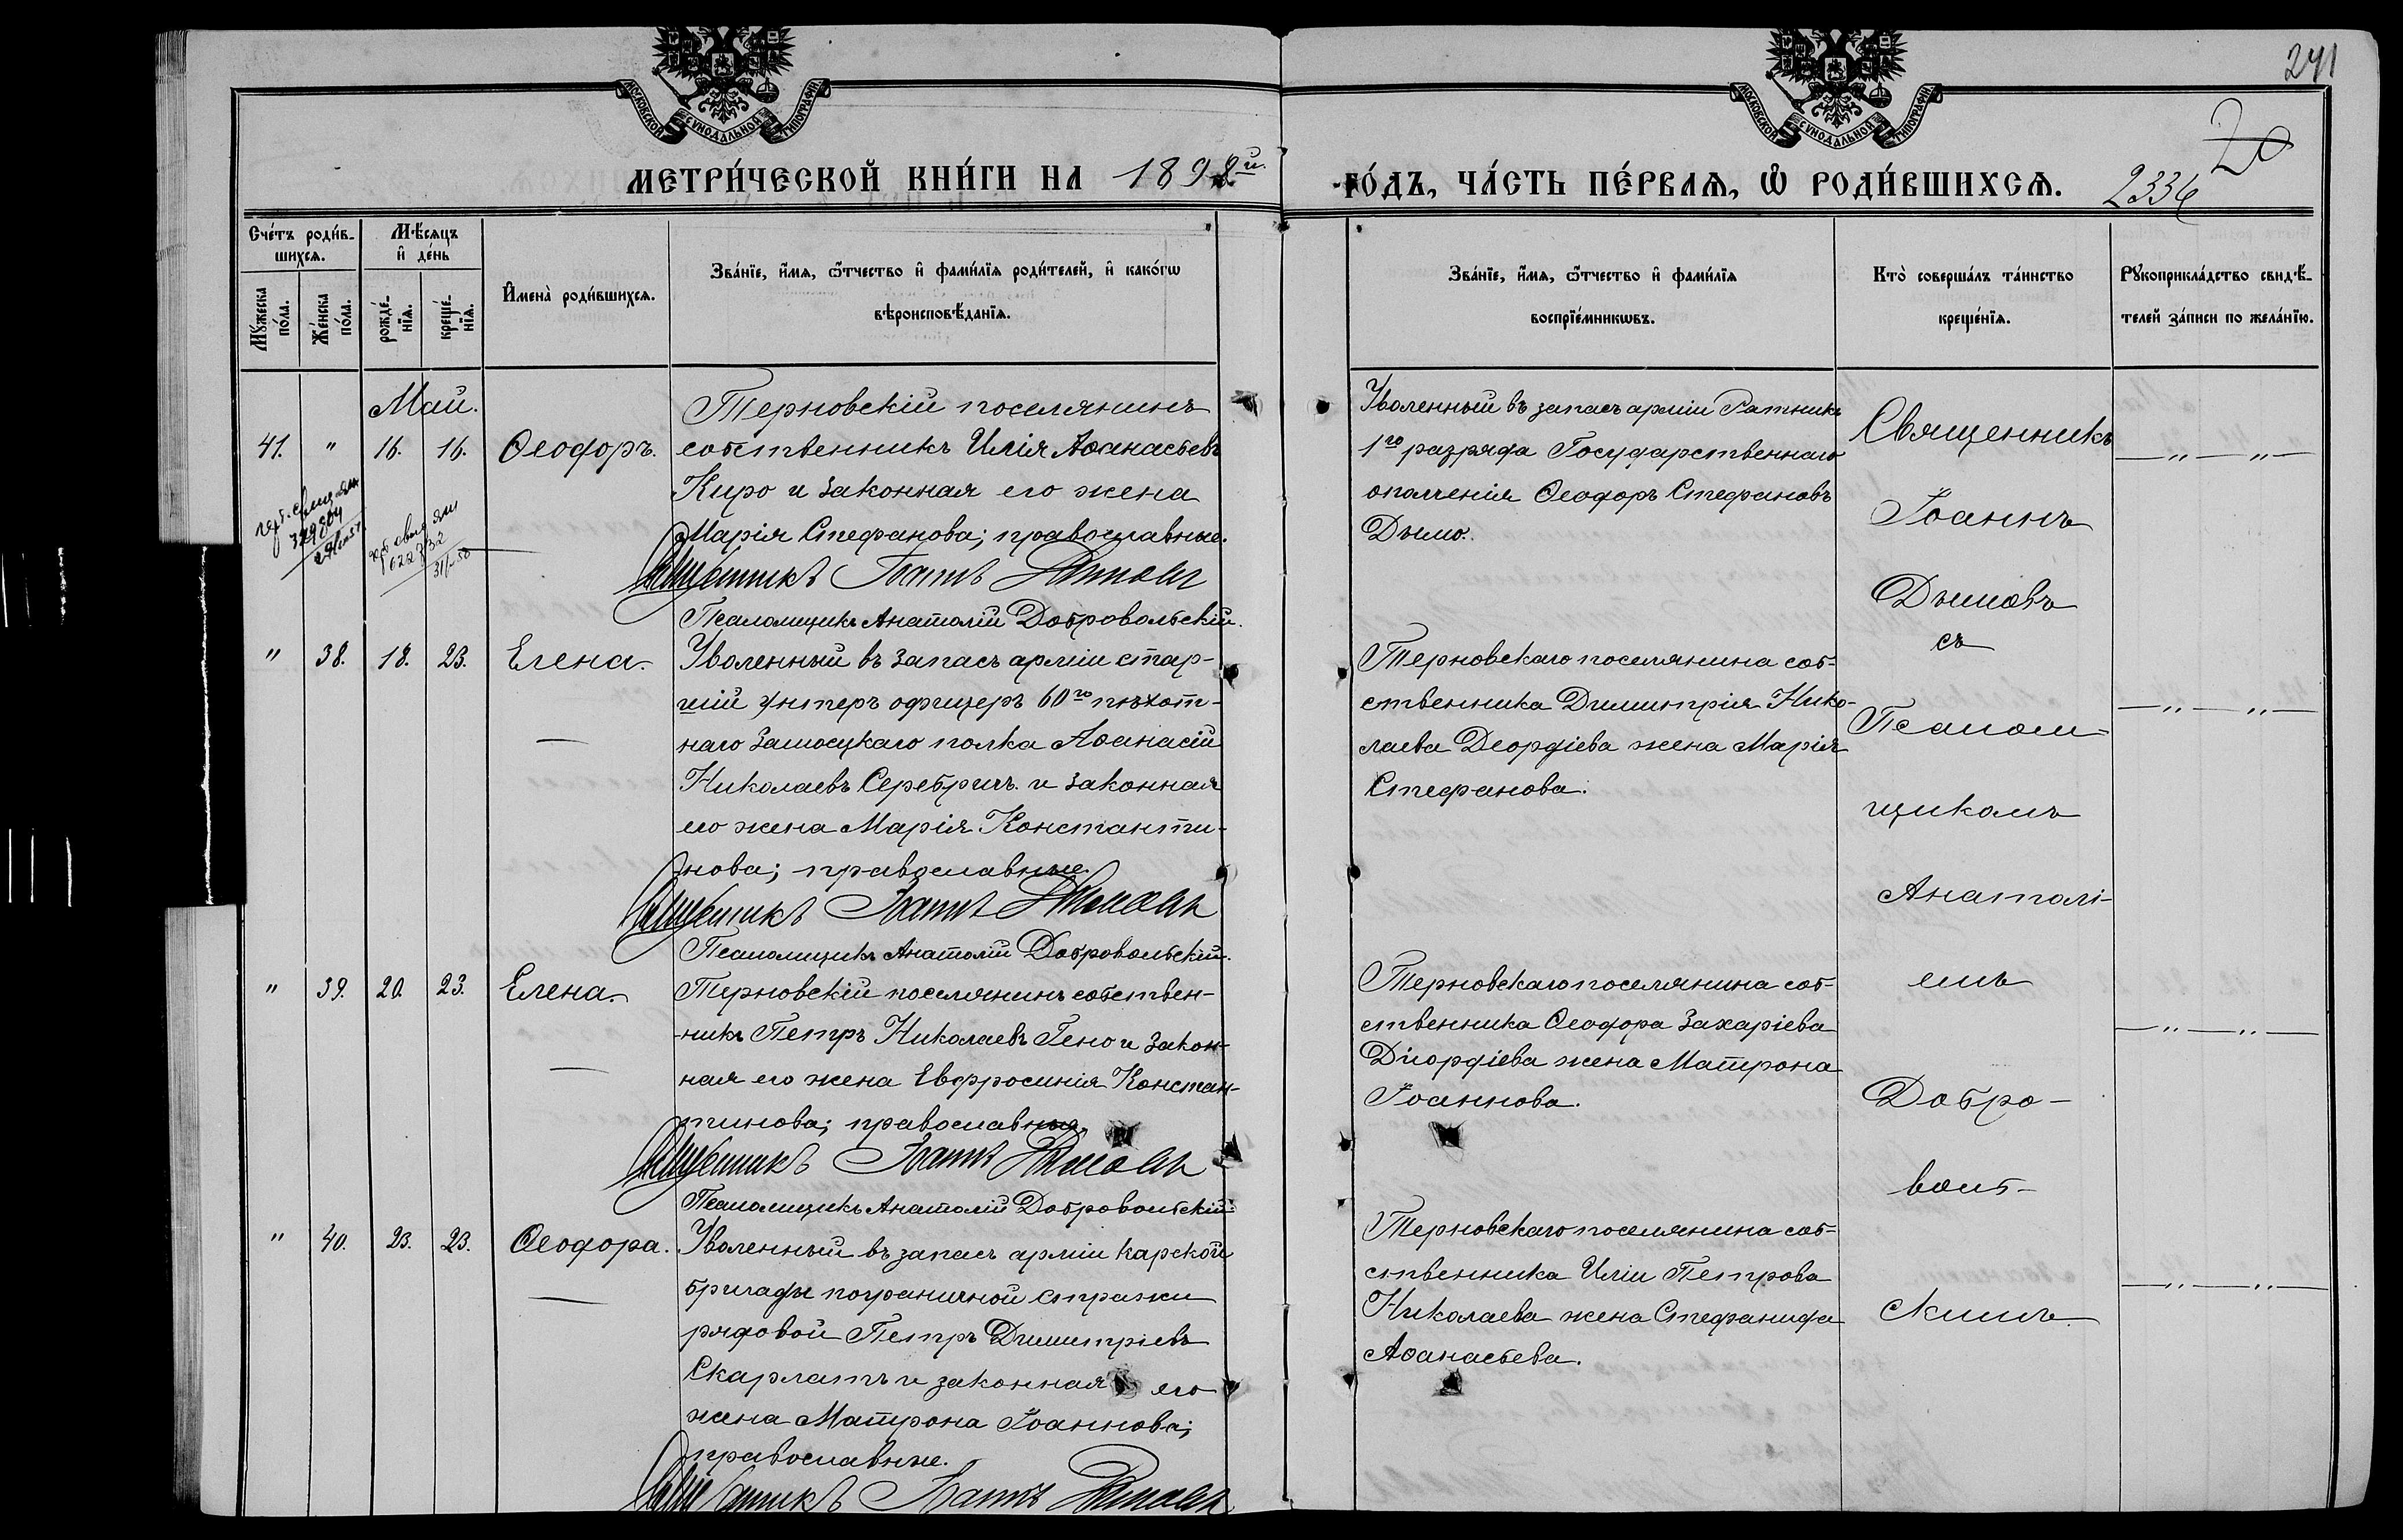 241
20
МОСКОВСКОЙ СѴНОДАЛЬНОЙ ТИПОГРАФІИ
МОСКОВСКОЙ СѴНОДАЛЬНОЙ ТИПОГРАФІИ
МЕТРИ́ЧЕСКОЙ КНИ́ГИ НА 1898й
ГО́ДЪ, ЧА́СТЬ ПЕ́РВАѦ, Ѡ҆ РОДИ́ВШИХСѦ. 2336
Сче́тъ роди́в-
шихсѧ.
Мꙋ́жеска по́ла.
Же́нска по́ла.
Мѣ́сѧцъ и҆ де́нь
рожде́-
нїѧ.
креще́-
нїѧ.
И҆мена̀ роди́вшихсѧ.
Зва́нїе, и҆́мѧ, ѻ҆́тчество и҆ фами́лїѧ роди́телей, и҆ како́гѡ
вѣроисповѣ́данїѧ.
Зва́нїе, и҆́мѧ, ѻ҆́тчество и҆ фами́лїѧ
воспрїе́мникѡвъ.
Кто̀ соверша́лъ та́инство
креще́нїѧ.
Рꙋкоприкла́дство свидѣ́-
телей за́писи по жела́нїю.
Май.
41. " 16. 16. Ѳеофоръ.
Терновскій поселянинъ
собственникъ Илія Аѳанасьевъ
Киро и законная его жена
Марія Стефанова; православные.
Священникъ Іоаннъ Дымовъ
Псаломщикъ Анатолій Добровольскій.
Уволенный въ запасъ арміи Ратникъ
1го разряда Государственнаго
ополченія Ѳеофоръ Стефановъ
Дымо.
" 38. 18. 23. Елена.
Уволенный въ запасъ арміи стар-
шій унтеръ офицеръ 60го пѣхот-
наго Замосцкаго полка Аѳанасій
Николаевъ Серебричъ и законная
его жена Марія Константи-
нова; православные.
Священникъ Іоаннъ Дымовъ
Псаломщикъ Анатолій Добровольскій.
Терновскаго поселянина соб-
ственника Димитрія Нико-
лаева Деордіева жена Марія
Стефанова.
" 39. 20. 23. Елена.
Терновскій поселянинъ собствен-
-никъ Петръ Николаевъ Гено и закон-
ная его жена Евфросинія Констан-
тинова; православные.
Священникъ Іоаннъ Дымовъ
Псаломщикъ Анатолій Добровольскій.
Терновскаго поселянина соб-
ственника Ѳеофора Захаріева
Діордіева жена Матрона
Іоаннова.
" 40. 23. 23. Ѳеофора.
Уволенный въ запасъ арміи Карской
бригады пограничной стражи
рядовой Петръ Димитріевъ
Скарлатъ и законная его
жена Матрона Іоаннова;
православные.
Священникъ Іоаннъ Дымовъ
Терновскаго поселянина соб-
ственника Иліи Петрова
Николаева жена Стефанида
Аѳанасьева.
Священникъ
Іоаннъ
Дымовъ
съ
Псалом-
щикомъ
Анатолі-
емъ
Добро-
воль-
скимъ.